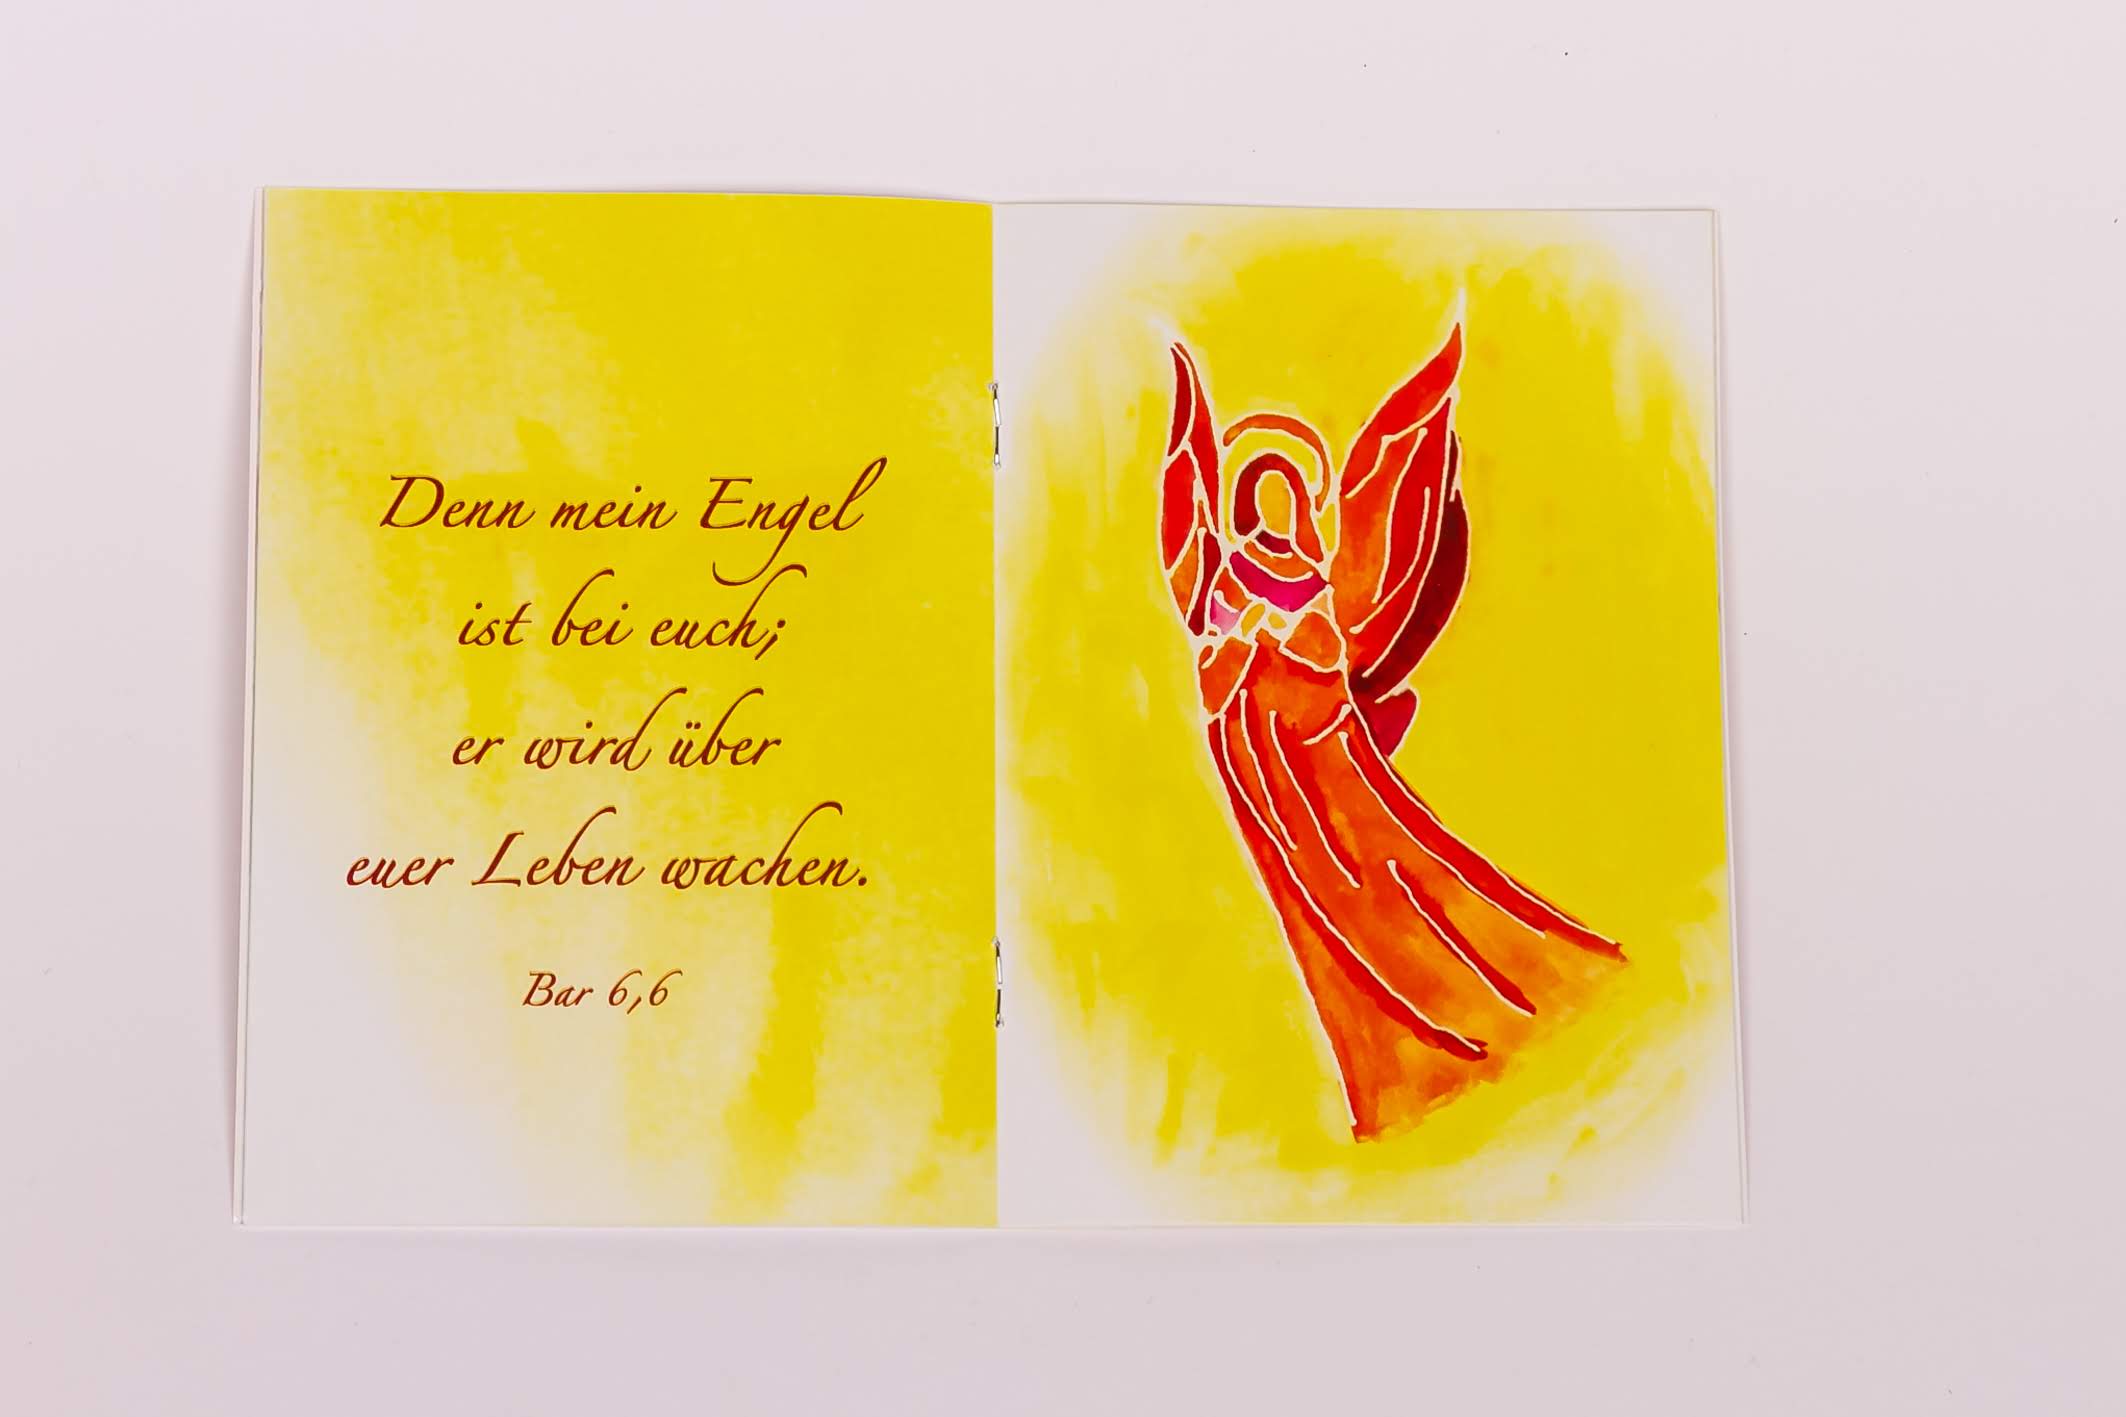 Denn mein Engel
ist bei euch;
er wird über
euer Leben wachen.
Bar 6,6